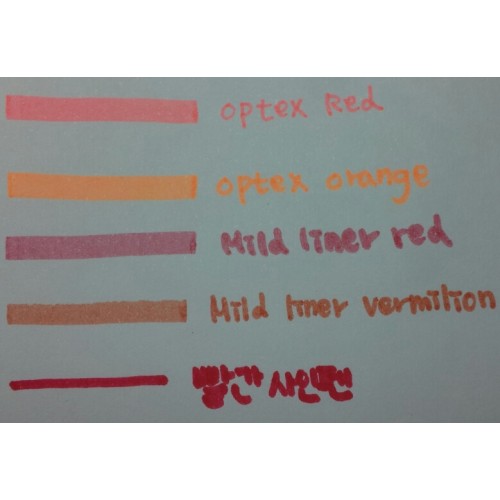 optex Red
optex orange
Mild liner red
Mild liner vermilion
빨간 사인펜